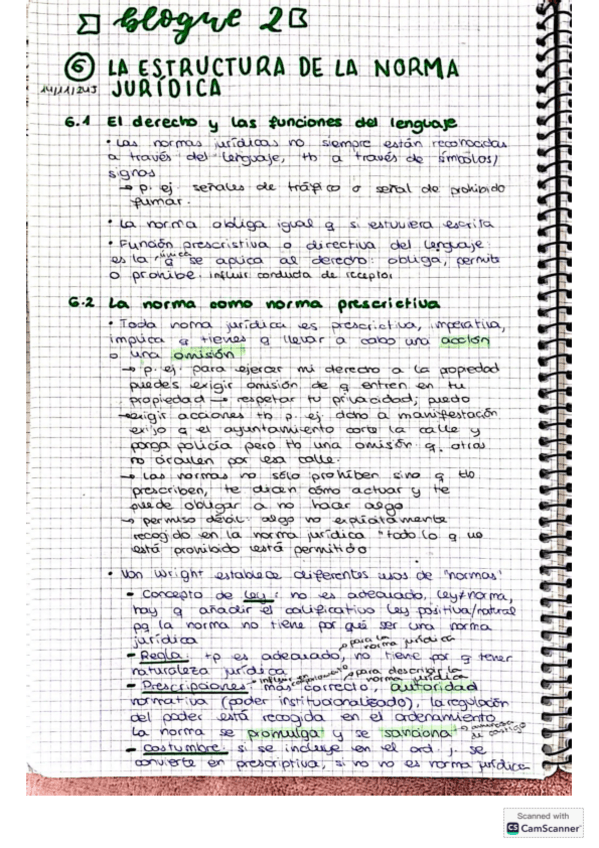 Bloque 2
6 LA ESTRUCTURA DE LA NORMA
14/11/23 JURÍDICA
6.1 El derecho y las funciones del lenguaje
• Las normas jurídicas no siempre están reconocidas
a través del lenguaje, tb a través de símbolos/
signos
→ p. ej señales de tráfico o señal de prohibido
fumar.
• La norma obliga igual q si estuviera escrita
• Función prescristiva o directiva del lenguaje:
es la única q se aplica al derecho: obliga, permite
o prohibe. influir conducta de receptor
6.2 La norma como norma prescrictiva
• Toda norma jurídica es prescrictiva, imperativa,
implica q tienes q llevar a cabo una acción
o una omisión
→ p. ej: para ejercer mi derecho a la propiedad
puedes exigir omisión de q entren en tu
propiedad → respetar tu privacidad, puedo
→ exigir acciones tb p. ej. dcho a manifestación
exijo q el ayuntamiento corte la calle y
ponga policía pero tb una omisión q. otras
no circulen por esa calle.
→ Las normas no sólo prohiben sino q tb
prescriben, te dicen cómo actuar y te
puede obligar a no hacer algo
→ permiso débil: algo no explícitamente
recogido en la norma jurídica "todo lo q no
está prohibido está permitido
• Von Wright establece diferentes usos de "normas"
- Concepto de ley: no es adecuado, ley≠norma,
hay q añadir el calificativo ley positiva/natural
pq la norma no tiene por qué ser una norma
jurídica
→ para la norma jurídica
- Regla: tp es adecuado, no tiene por q tener
naturaleza jurídica
→ para describir la norma jurídica
- Prescripciones: más correcto, autoridad
normativa (poder institucionalizado), la regulación
del poder está recogida en el ordenamiento
La norma se promulga y se sanciona → amenaza de castigo
- Costumbre: si se incluye en el ord. j. se
convierte en prescriptiva, si no no es norma jurídica
Scanned with
CS CamScanner